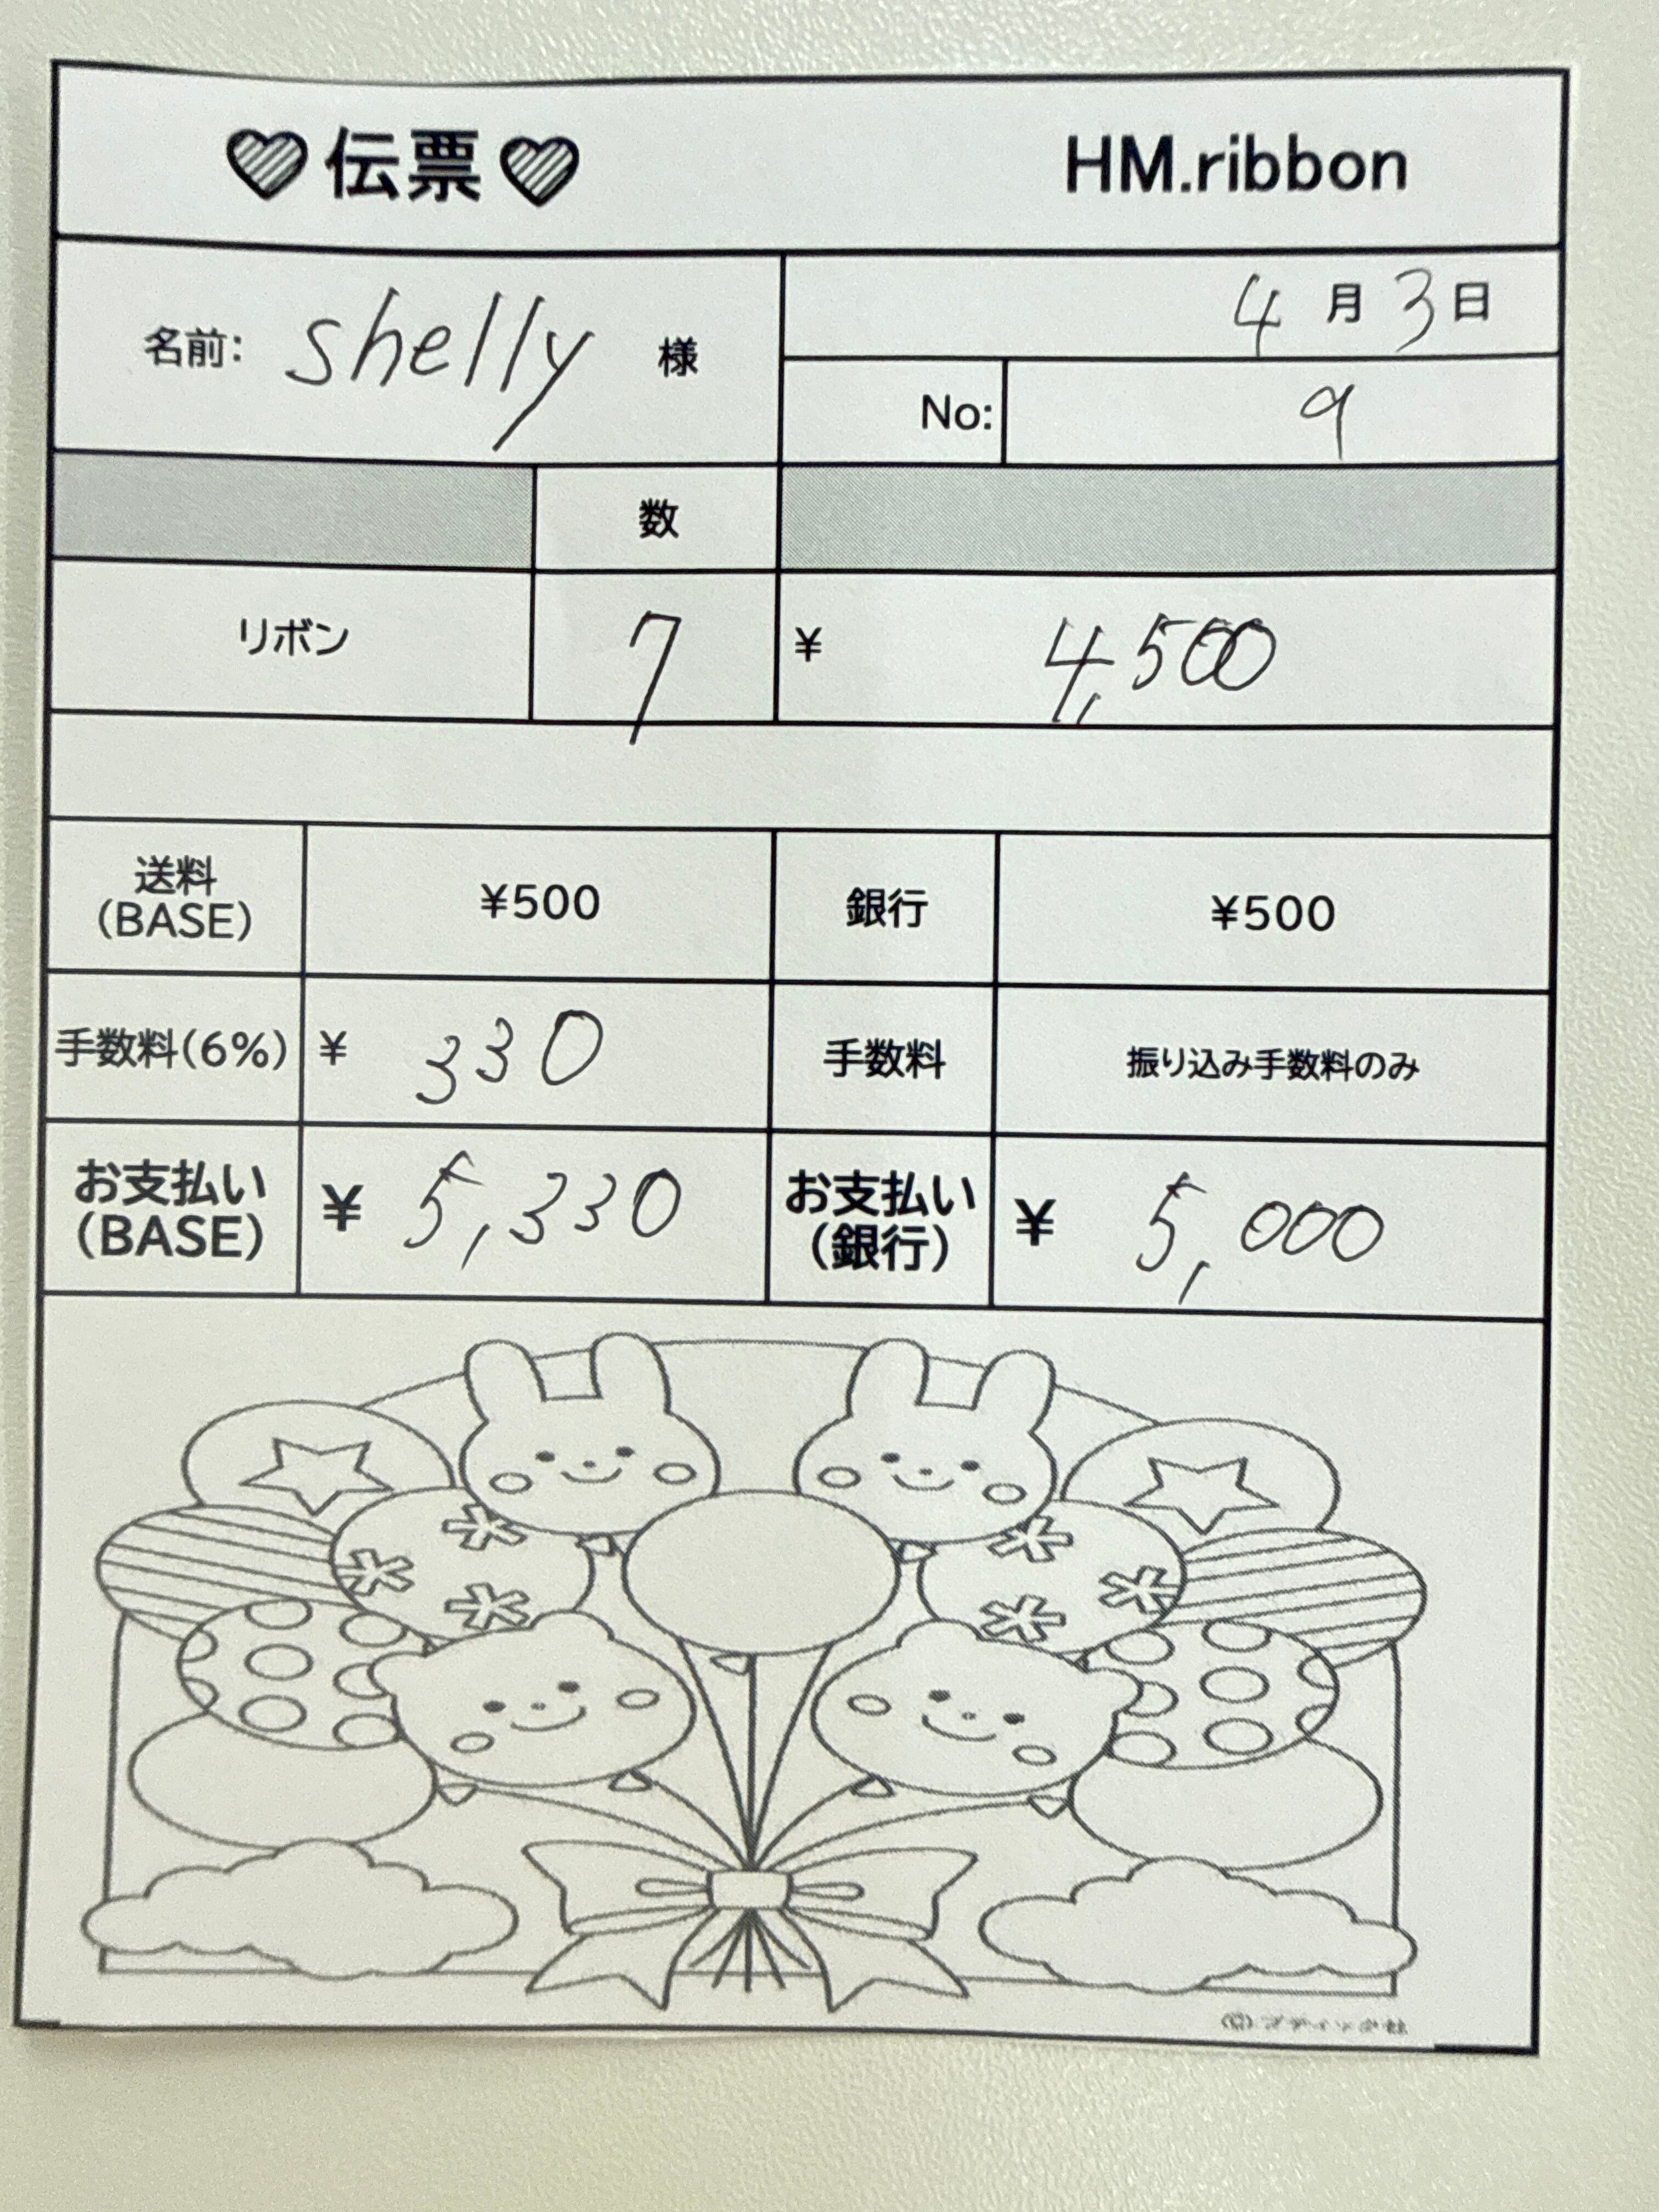 伝票 HM.ribbon
名前: shelly 様
4月3日
No: 9
数
リボン 7 ¥ 4,500
送料 (BASE) ¥500 銀行 ¥500
手数料(6%) ¥ 330 手数料 振り込み手数料のみ
お支払い (BASE) ¥ 5,330 お支払い (銀行) ¥ 5,000